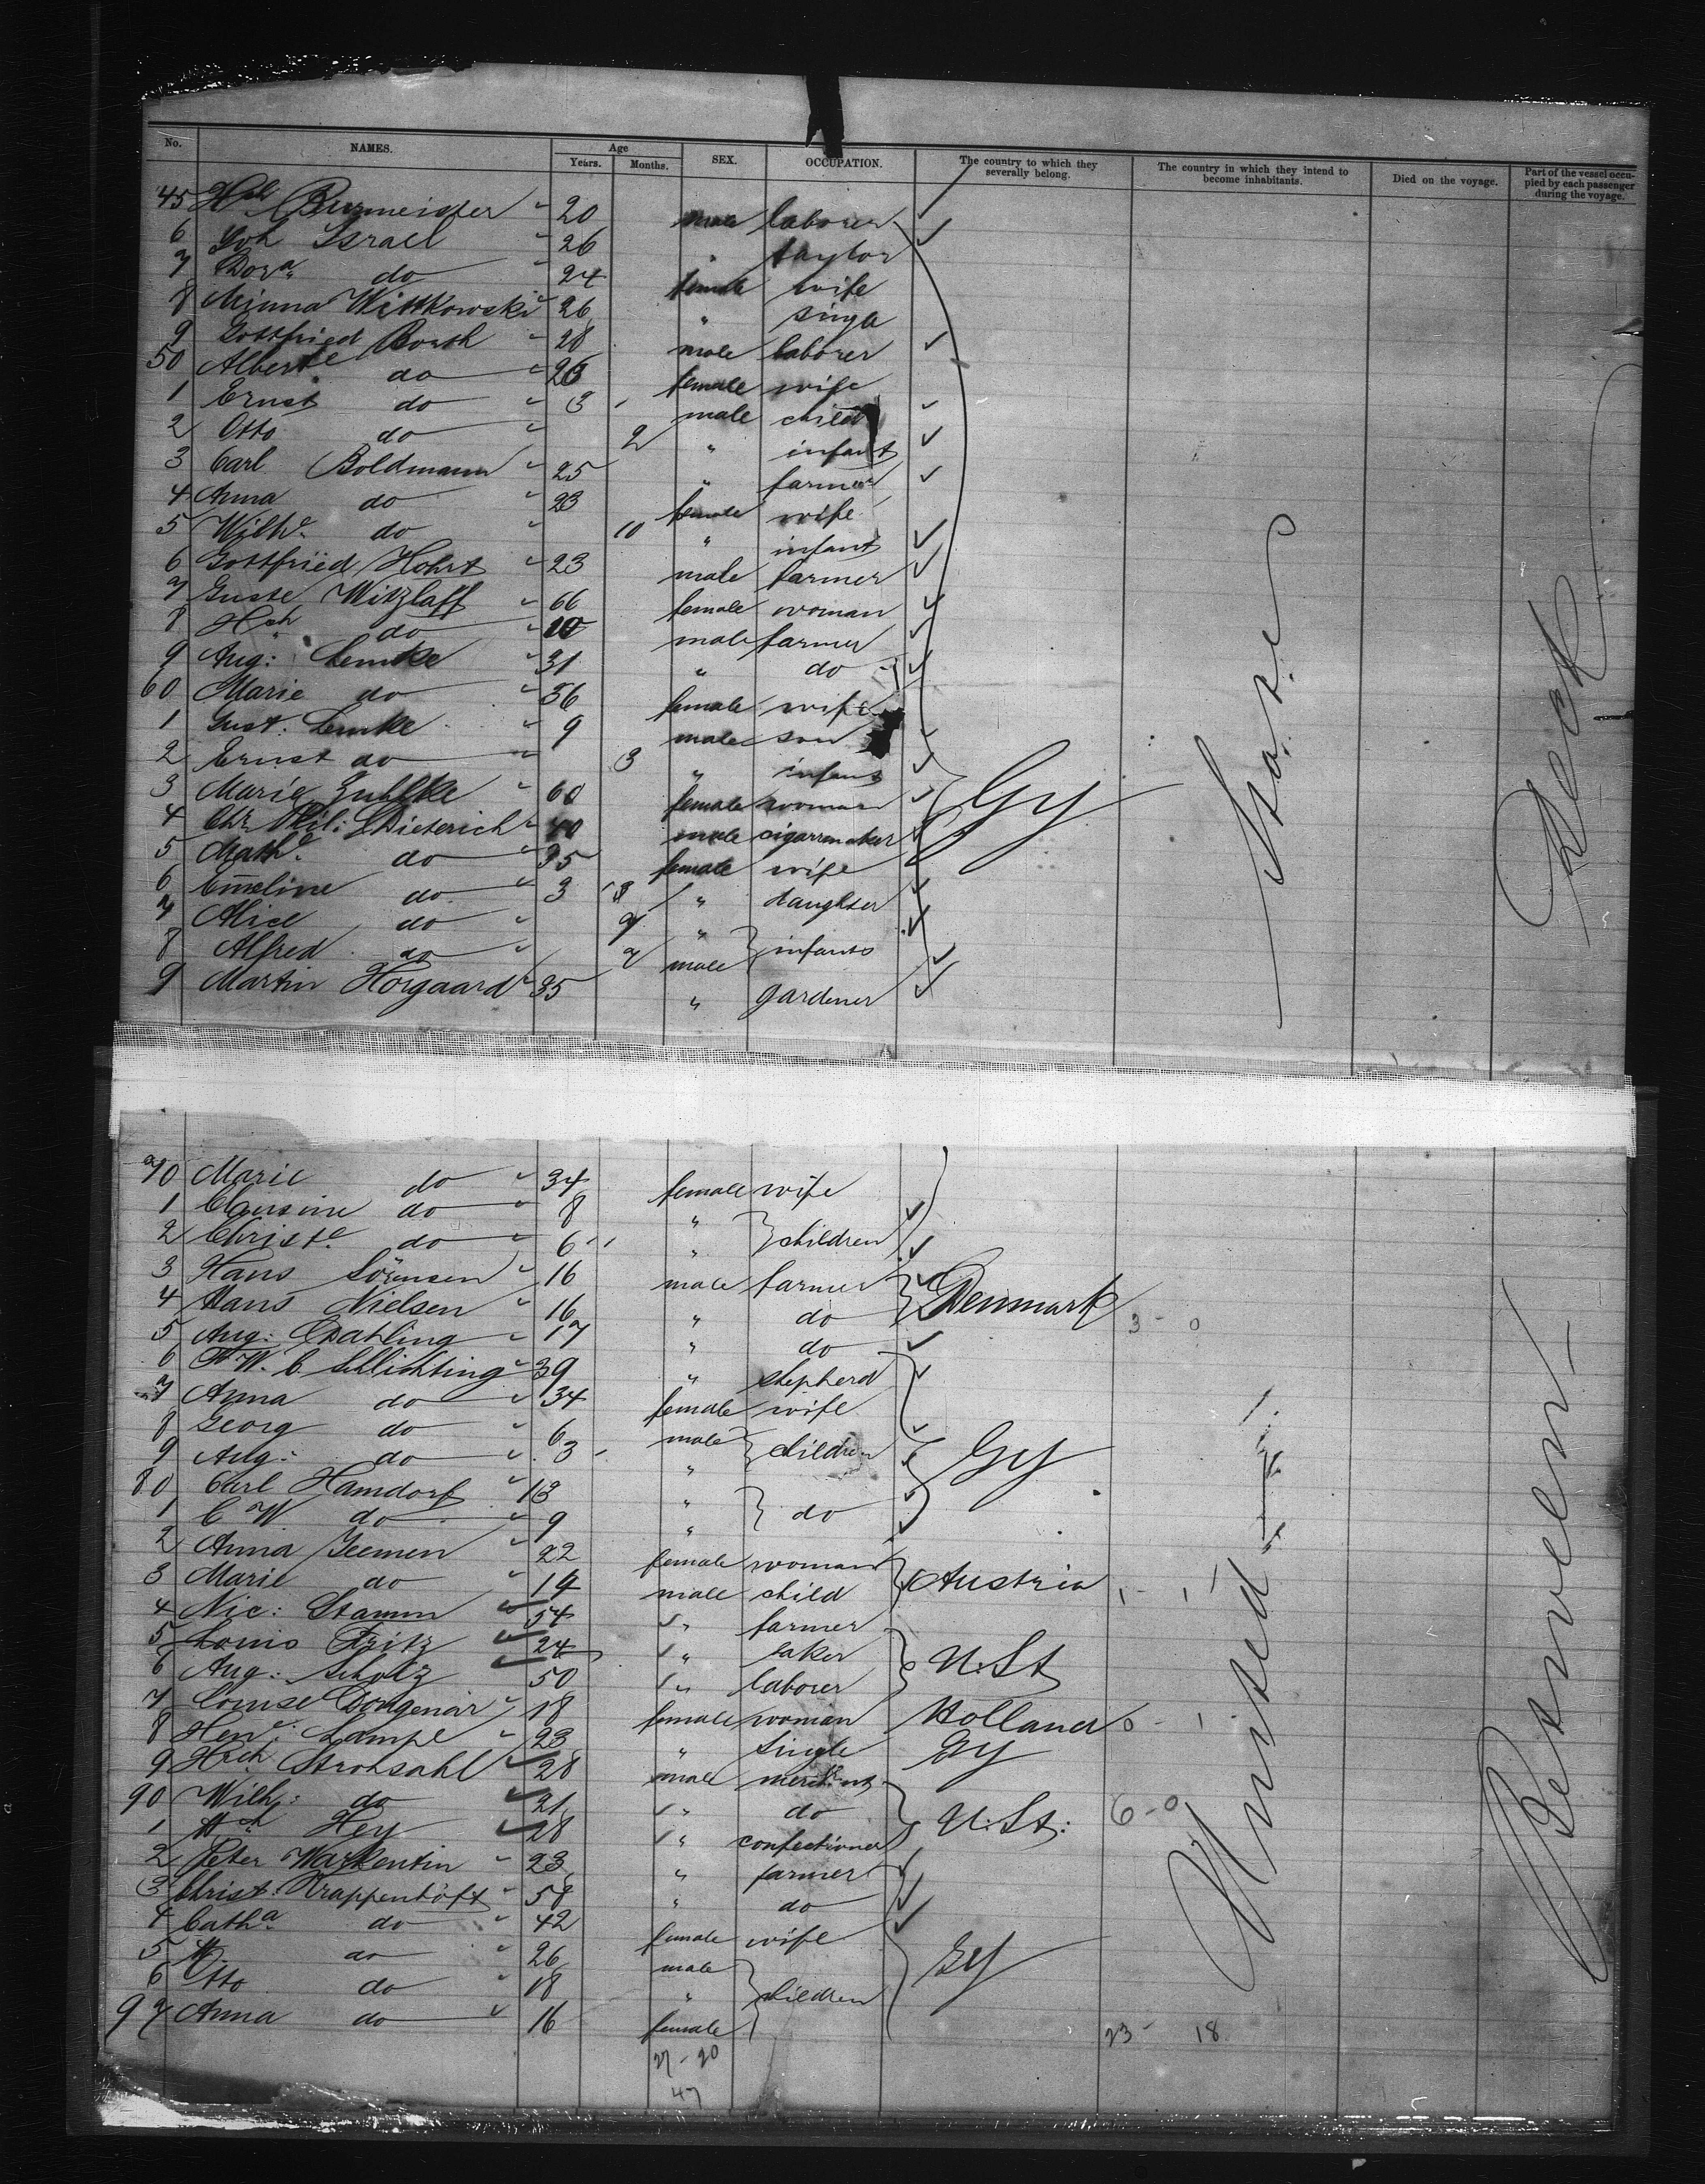 No. NAMES. Age Years. Months. SEX. OCCUPATION. The country to which they severally belong. The country in which they intend to become inhabitants. Died on the voyage. Part of the vessel occupied by each passenger during the voyage.
45 Hch Burmeister 20 male laborer
6 Joh Israel 26 " taylor
7 Dora do 24 female wife
8 Minna Wittkowski 26 "
9 Gottfried Borth 28 male laborer
50 Alberte do 26 female wife
1 Ernst do 3 male child
2 Otto do 2 " infant
3 Carl Boldmann 25 " farmer
4 Anna do 23 female wife
5 Wilhe do 10 " infant
6 Gottfried Hohrt 23 male farmer
7 Guste Witzlaff 66 female woman
8 Hch do male farmer
9 Aug: Lemke 31 " do
60 Marie do 36 female wife
1 Gust: Lemke 9 male son
2 Ernst do 3 " infant
3 Marie Zuhlke 60 female woman Gy
4 Chr Phil: Dieterich 40 male cigarrmaker
5 Mathe do 35 female wife
6 Emeline do 3 " daughter
7 Alice do 9 "
8 Alfred do 9 male infants
9 Martin Horgaard 35 " gardener
70 Marie do 34 female wife
1 do 8 "
2 Christe do 6 " children
3 Hans Sörensen 16 male farmer
4 Hans Nielsen 16 " do Denmark 3 - 0
5 Aug: Dahling 17 " do
6 W. C Schlichting 39 " shepherd
7 Anna do 34 female wife
8 Georg do 6 male
9 Aug: do 3 " children Gy
80 Carl Hamdorf 13 "
1 C W do 9 " do
2 Anna Jeemen 22 female woman
3 Marie do 14 male child Austria 1 - 1
4 Nic: Stamm 54 " farmer
5 Louis Fritz 24 " baker U:St
6 Aug: Scholz 50 " laborer
7 Louise 18 female woman Holland 0 - 1
8 Hene: Lampe 23 " single Gy
9 Hch Strohsahl 28 male
90 Wilh: do 21 " do
1 Hch Hey 28 " confectioner U:St: 6 - 0
2 Peter Warkentin 23 " farmer
3 Christ: Krappenhöft 58 " do
4 Catha do 42 female wife
5 H. do 26 male Gy
6 Otto do 18 " children
97 Anna do 16 female
23 - 18
27 - 20
47
United States
Deck